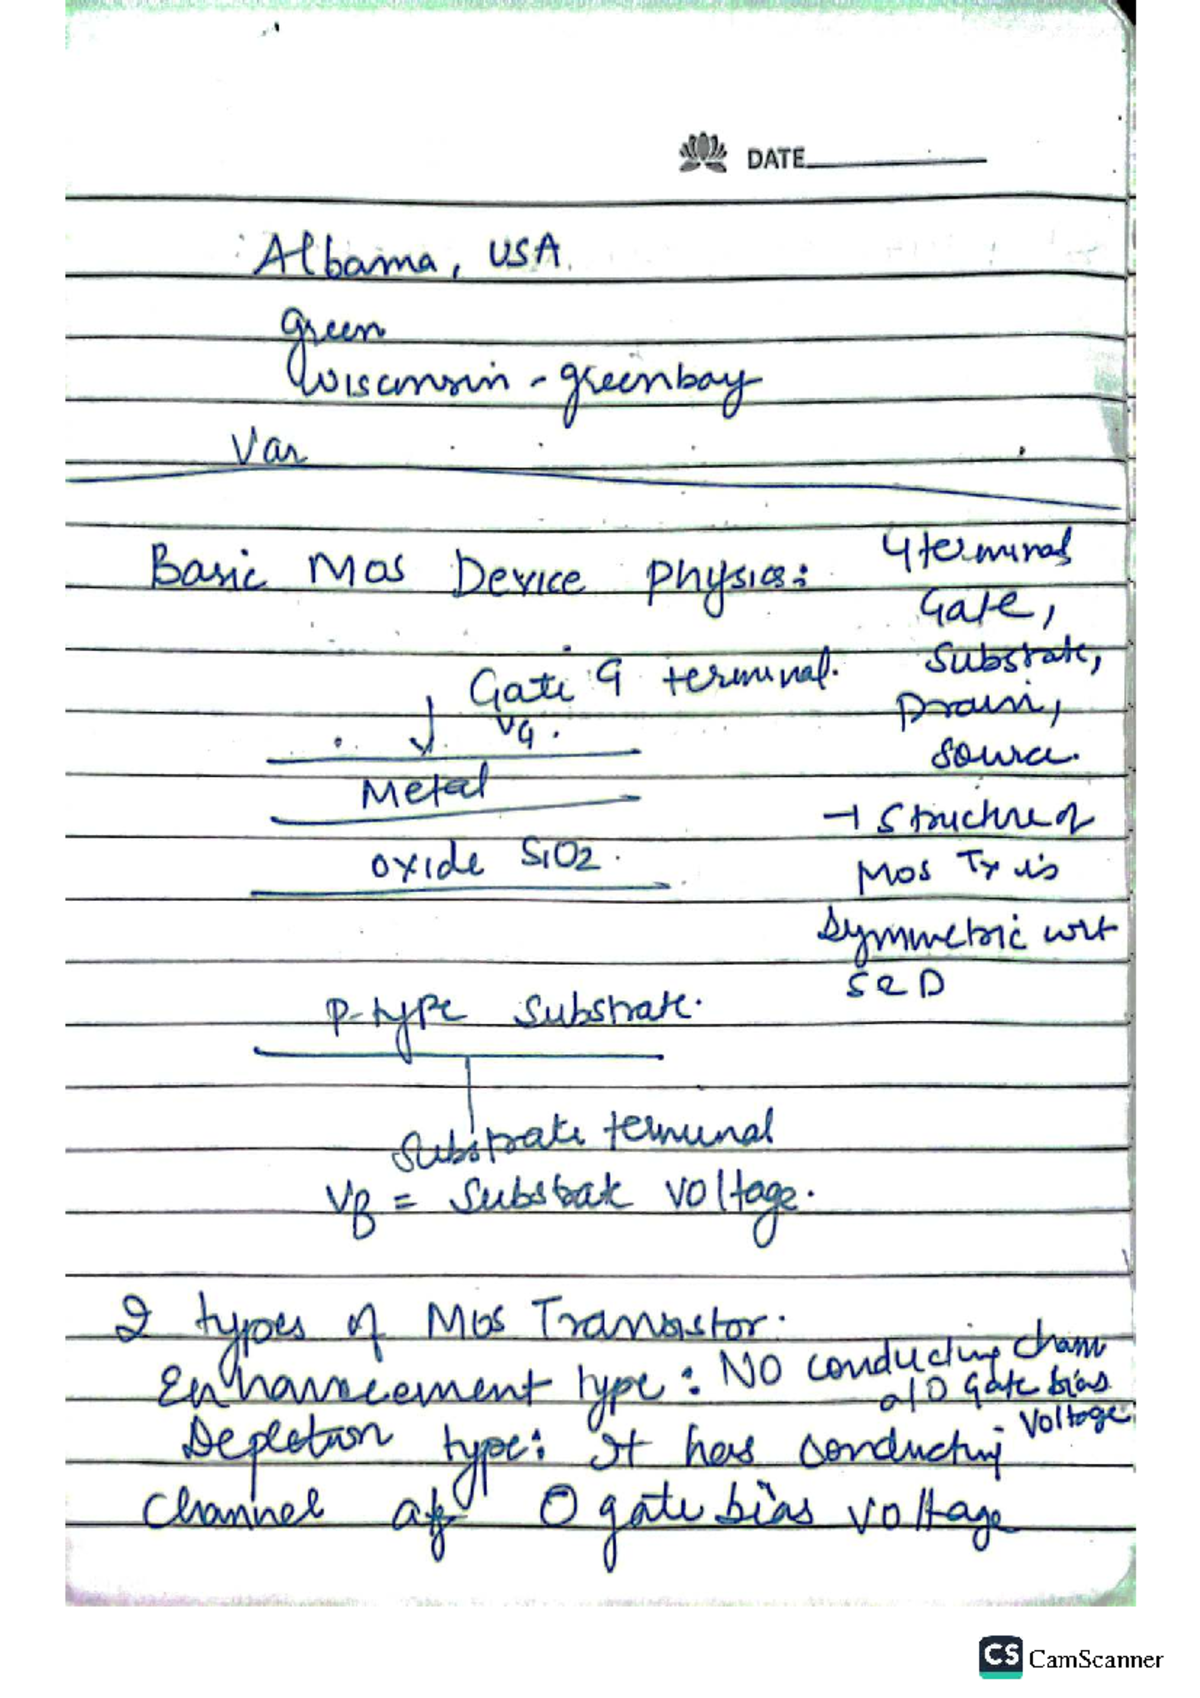 DATE
Albama, USA.
green
Wisconsin - greenbay
Var
Basic Mos Device physics:
4 terminal
Gate,
Substrate,
Drain,
Source.
→ Structure of
Mos Tx is
Symmetric wrt
S & D
Gate G terminal.
VG.
Metal
oxide SiO2.
P-type Substrate.
Substrate terminal
VB = Substrate voltage.
2 types of Mos Transistor.
Enhancement type: NO conducting chann
a/O Gate bias
Voltage
Depletion type: It has conducting
Channel at O gate bias voltage
CS CamScanner